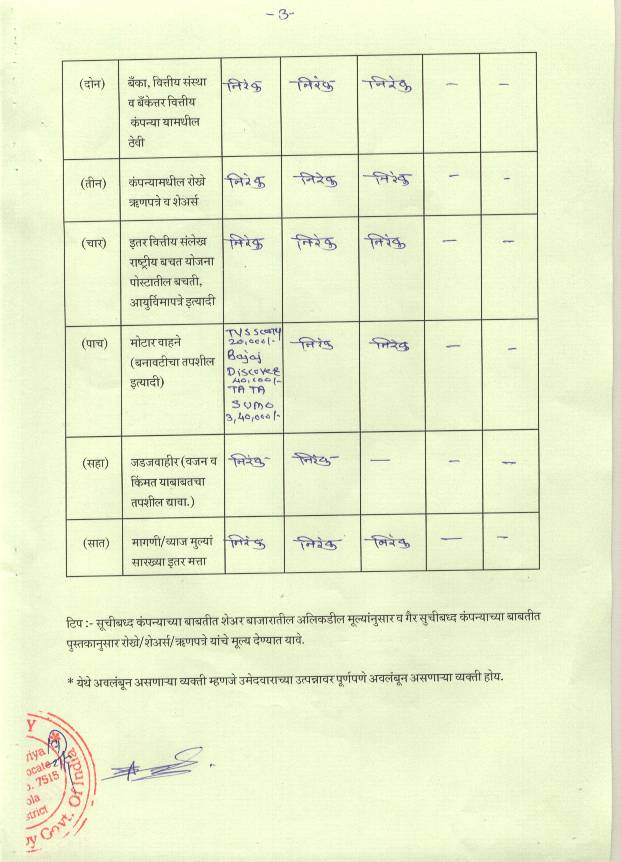 -3-
(दोन) बँका, वित्तीय संस्था निरंक निरंक निरंक - -
व बँकेत्तर वित्तीय
कंपन्या यामधील
ठेवी
(तीन) कंपन्यामधील रोखे निरंक निरंक निरंक - -
ऋणपत्रे व शेअर्स
(चार) इतर वित्तीय संलेख निरंक निरंक निरंक - -
राष्ट्रीय बचत योजना
पोस्टातील बचती,
आयुर्विमापत्रे इत्यादी
(पाच) मोटार वाहने TVS Scooty निरंक निरंक - -
(बनावटीचा तपशील 20,000/-
इत्यादी) Bajaj
Discover
40,000/-
TA TA
SUMO
3,40,000/-
(सहा) जडजवाहीर (वजन व निरंक निरंक - - -
किंमत याबाबतचा
तपशील द्यावा.)
(सात) मागणी/व्याज मुल्यां निरंक निरंक निरंक - -
सारख्या इतर मत्ता
टिप :- सूचीबध्द कंपन्याच्या बाबतीत शेअर बाजारातील अलिकडील मूल्यांनुसार व गैर सुचीबध्द कंपन्याच्या बाबतीत
पुस्तकानुसार रोखे/शेअर्स/ऋणपत्रे यांचे मूल्य देण्यात यावे.
* येथे अवलंबून असणाऱ्या व्यक्ती म्हणजे उमेदवाराच्या उत्पन्नावर पूर्णपणे अवलंबून असणाऱ्या व्यक्ती होय.
7515
Govt. Of India